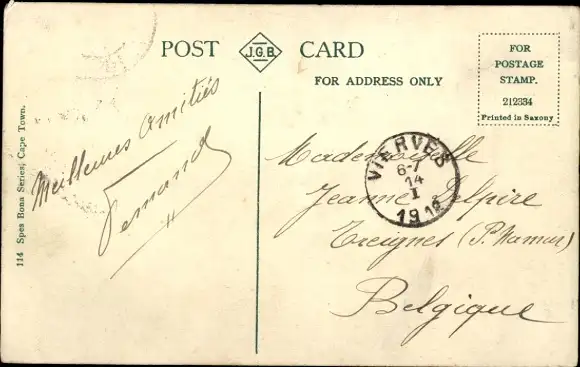 POST J.G.B. CARD
FOR ADDRESS ONLY
FOR
POSTAGE
STAMP.
212334
Printed in Saxony
114 Spes Bona Series, Cape Town.
Meilleures amitiés
Fernand
VIERVES
6-7
14
I
1912
Mademoiselle
Jeanne Delpire
Treignes (P. Namur)
Belgique